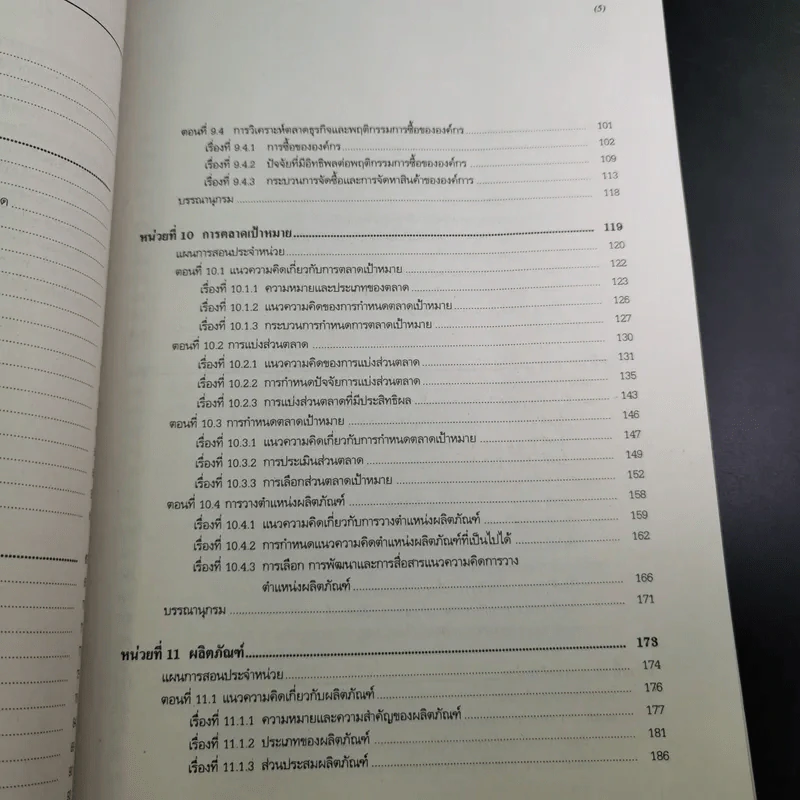 (5)
ตอนที่ 9.4 การวิเคราะห์ตลาดธุรกิจและพฤติกรรมการซื้อขององค์กร 101
เรื่องที่ 9.4.1 การซื้อขององค์กร 102
เรื่องที่ 9.4.2 ปัจจัยที่มีอิทธิพลต่อพฤติกรรมการซื้อขององค์กร 109
เรื่องที่ 9.4.3 กระบวนการจัดซื้อและการจัดหาสินค้าขององค์การ 113
บรรณานุกรม 118
หน่วยที่ 10 การตลาดเป้าหมาย 119
แผนการสอนประจำหน่วย 120
ตอนที่ 10.1 แนวความคิดเกี่ยวกับการตลาดเป้าหมาย 122
เรื่องที่ 10.1.1 ความหมายและประเภทของตลาด 123
เรื่องที่ 10.1.2 แนวความคิดของการกำหนดตลาดเป้าหมาย 126
เรื่องที่ 10.1.3 กระบวนการกำหนดการตลาดเป้าหมาย 127
ตอนที่ 10.2 การแบ่งส่วนตลาด 130
เรื่องที่ 10.2.1 แนวความคิดของการแบ่งส่วนตลาด 131
เรื่องที่ 10.2.2 การกำหนดปัจจัยการแบ่งส่วนตลาด 135
เรื่องที่ 10.2.3 การแบ่งส่วนตลาดที่มีประสิทธิผล 143
ตอนที่ 10.3 การกำหนดตลาดเป้าหมาย 146
เรื่องที่ 10.3.1 แนวความคิดเกี่ยวกับการกำหนดตลาดเป้าหมาย 147
เรื่องที่ 10.3.2 การประเมินส่วนตลาด 149
เรื่องที่ 10.3.3 การเลือกส่วนตลาดเป้าหมาย 152
ตอนที่ 10.4 การวางตำแหน่งผลิตภัณฑ์ 158
เรื่องที่ 10.4.1 แนวความคิดเกี่ยวกับการวางตำแหน่งผลิตภัณฑ์ 159
เรื่องที่ 10.4.2 การกำหนดแนวความคิดตำแหน่งผลิตภัณฑ์ที่เป็นไปได้ 162
เรื่องที่ 10.4.3 การเลือก การพัฒนาและการสื่อสารแนวความคิดการวาง
ตำแหน่งผลิตภัณฑ์ 166
บรรณานุกรม 171
หน่วยที่ 11 ผลิตภัณฑ์ 173
แผนการสอนประจำหน่วย 174
ตอนที่ 11.1 แนวความคิดเกี่ยวกับผลิตภัณฑ์ 176
เรื่องที่ 11.1.1 ความหมายและความสำคัญของผลิตภัณฑ์ 177
เรื่องที่ 11.1.2 ประเภทของผลิตภัณฑ์ 181
เรื่องที่ 11.1.3 ส่วนประสมผลิตภัณฑ์ 186